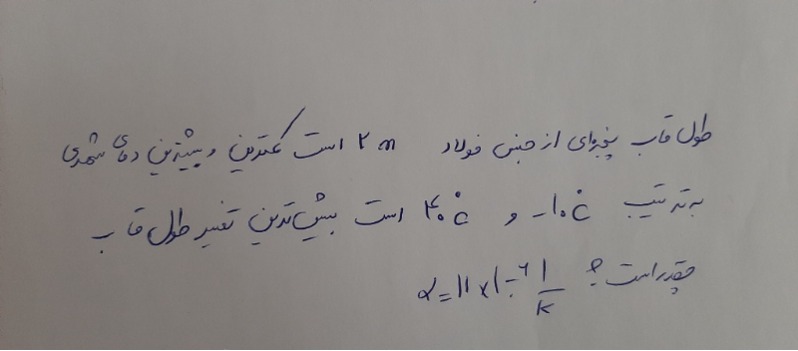 طول قاب پنجره‌ای از جنس فولاد ۲ m است کمترین و بیشترین دمای شهری
به ترتیب -۱۰°c و ۴۰°c است بیش‌ترین تغییر طول قاب
چقدر است؟ α = ۱۱ × ۱۰^-۶ ۱/k